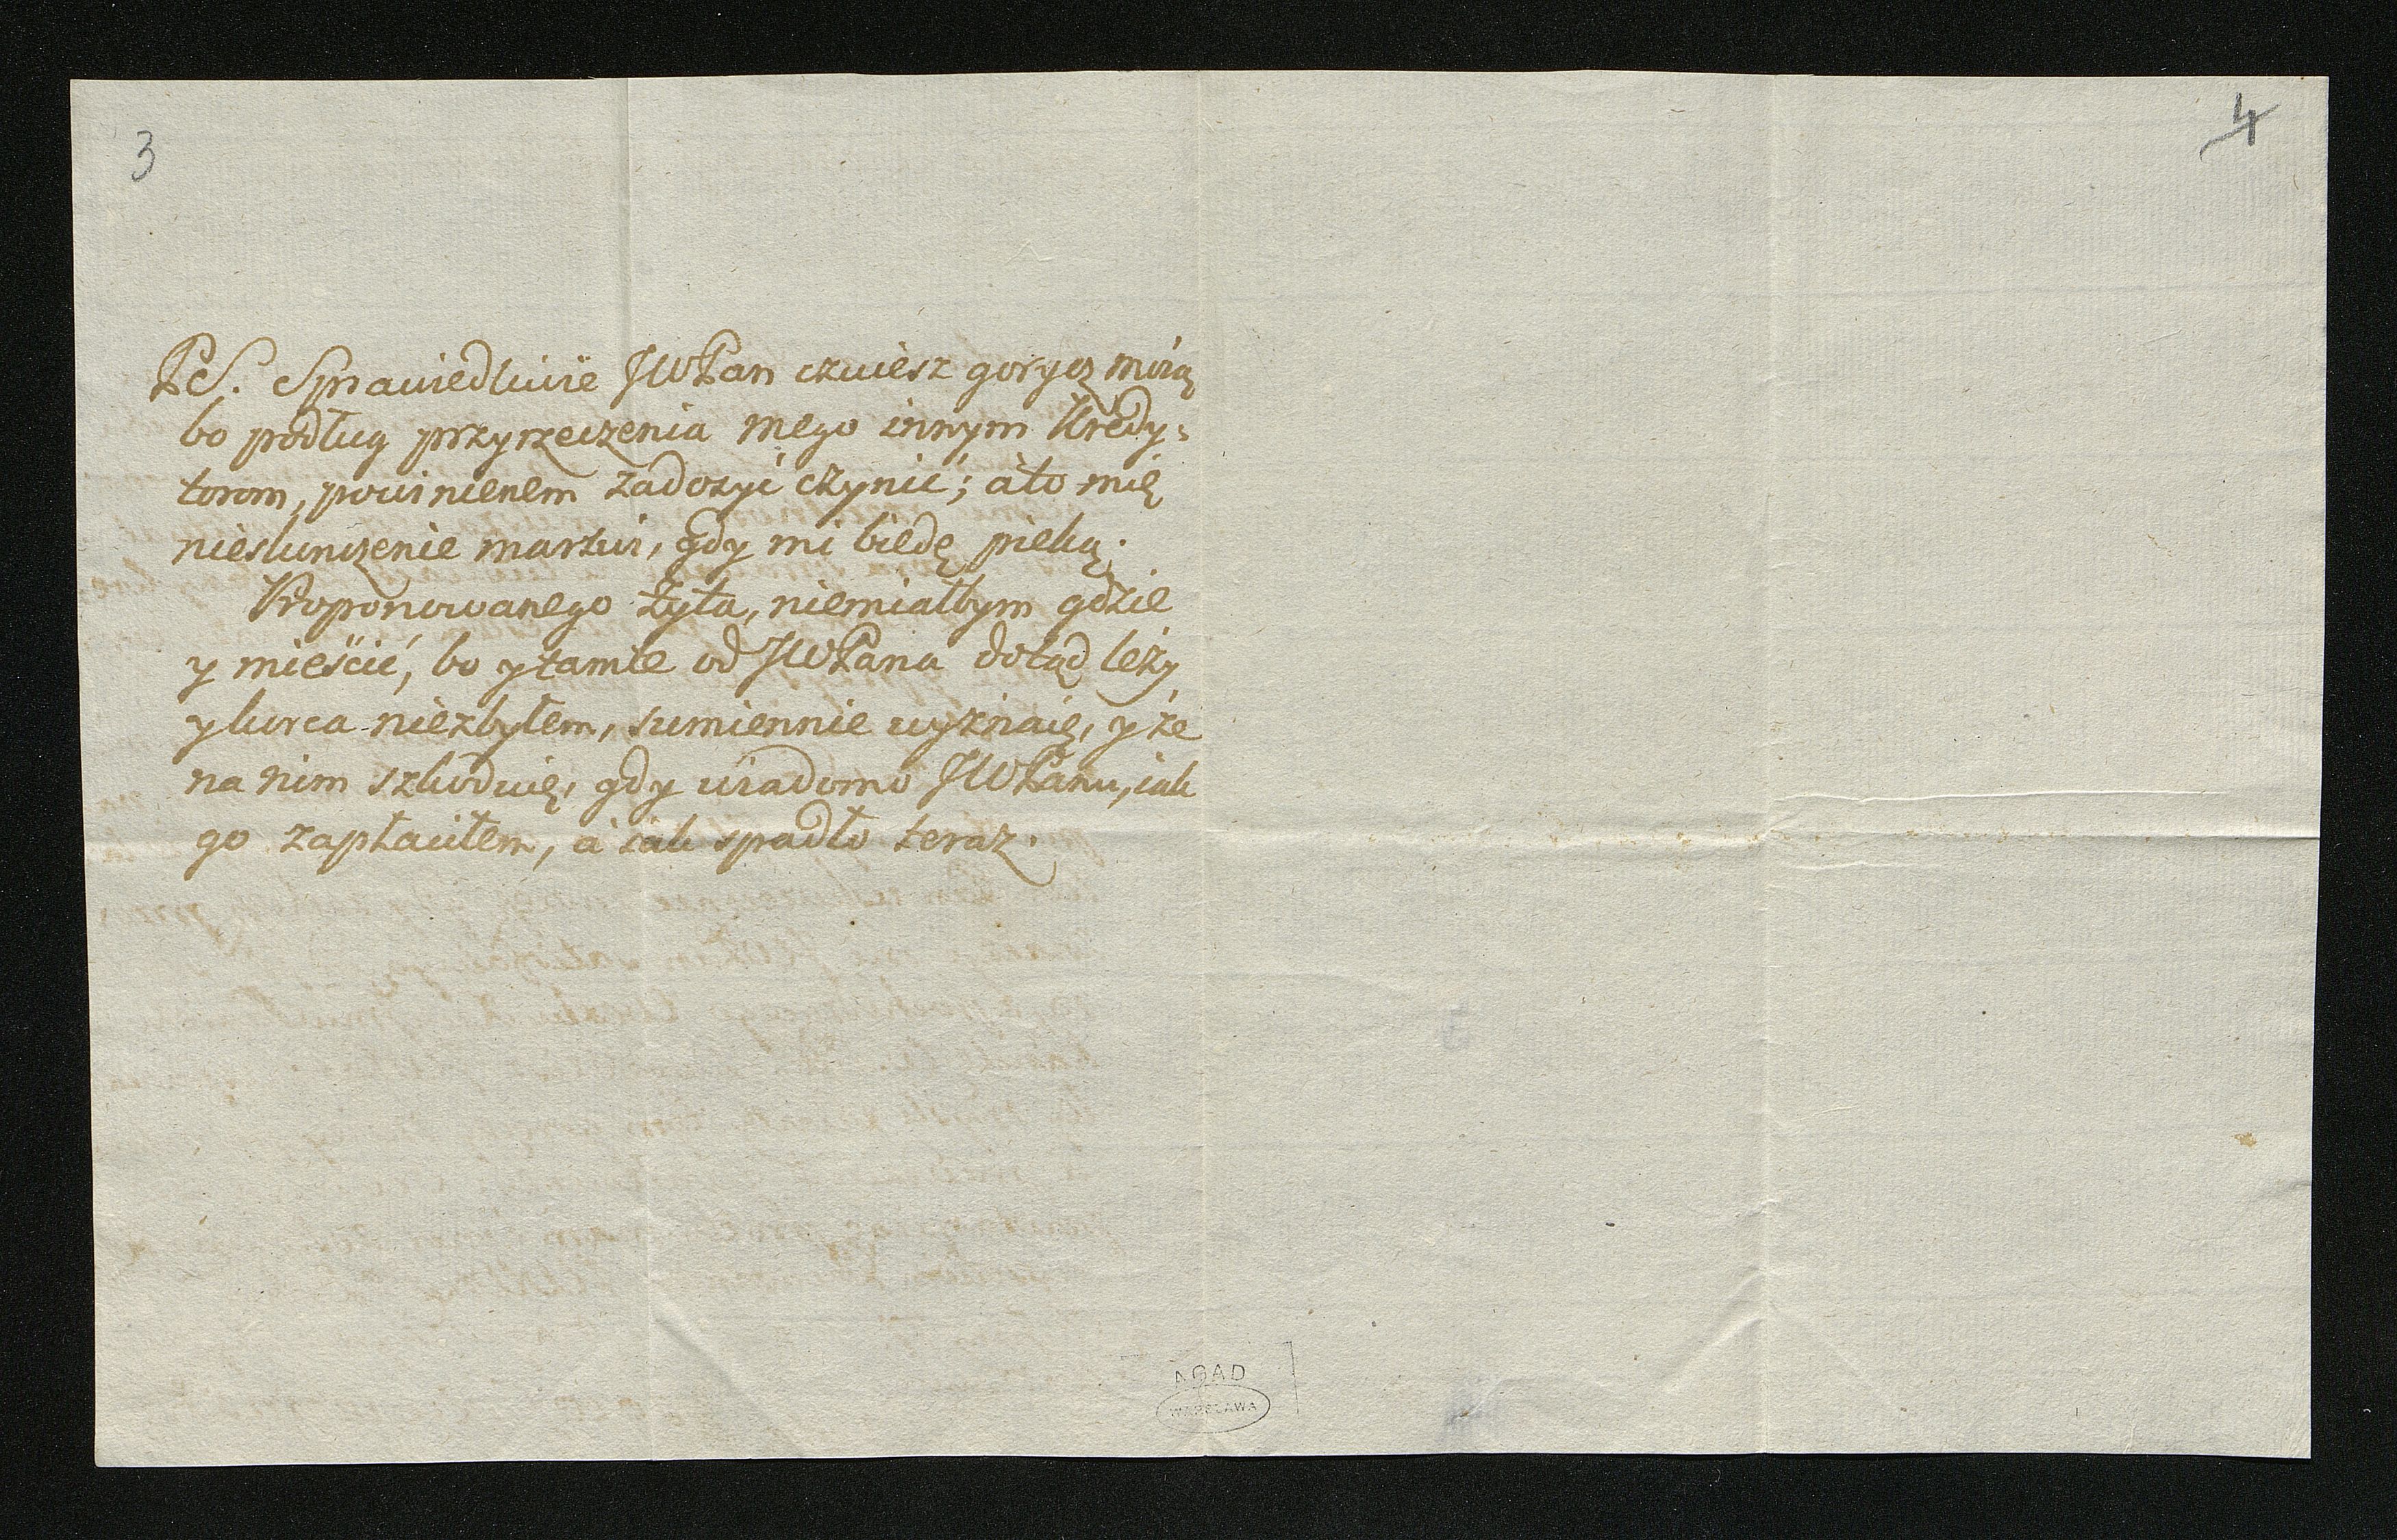 3
4
PS. Sprawiedliwie JWPan czuiesz gorycz moią
bo podług przyrzeczenia mego innym Kredy=
torom, powinienem zadosyć czynić; a to mię
nieskończenie martwi, gdy mi biedę pieką.
Proponowanego żyta, niemiałbym gdzie
y mieścić, bo y tamte od JWPana dotąd leży
y korca niezbyłem, sumiennie wyznaię, y że
na nim szkoduię, gdy wiadomo JWPanu, iak
go zapłaciłem, a iak spadło teraz.
AGAD
WARSZAWA